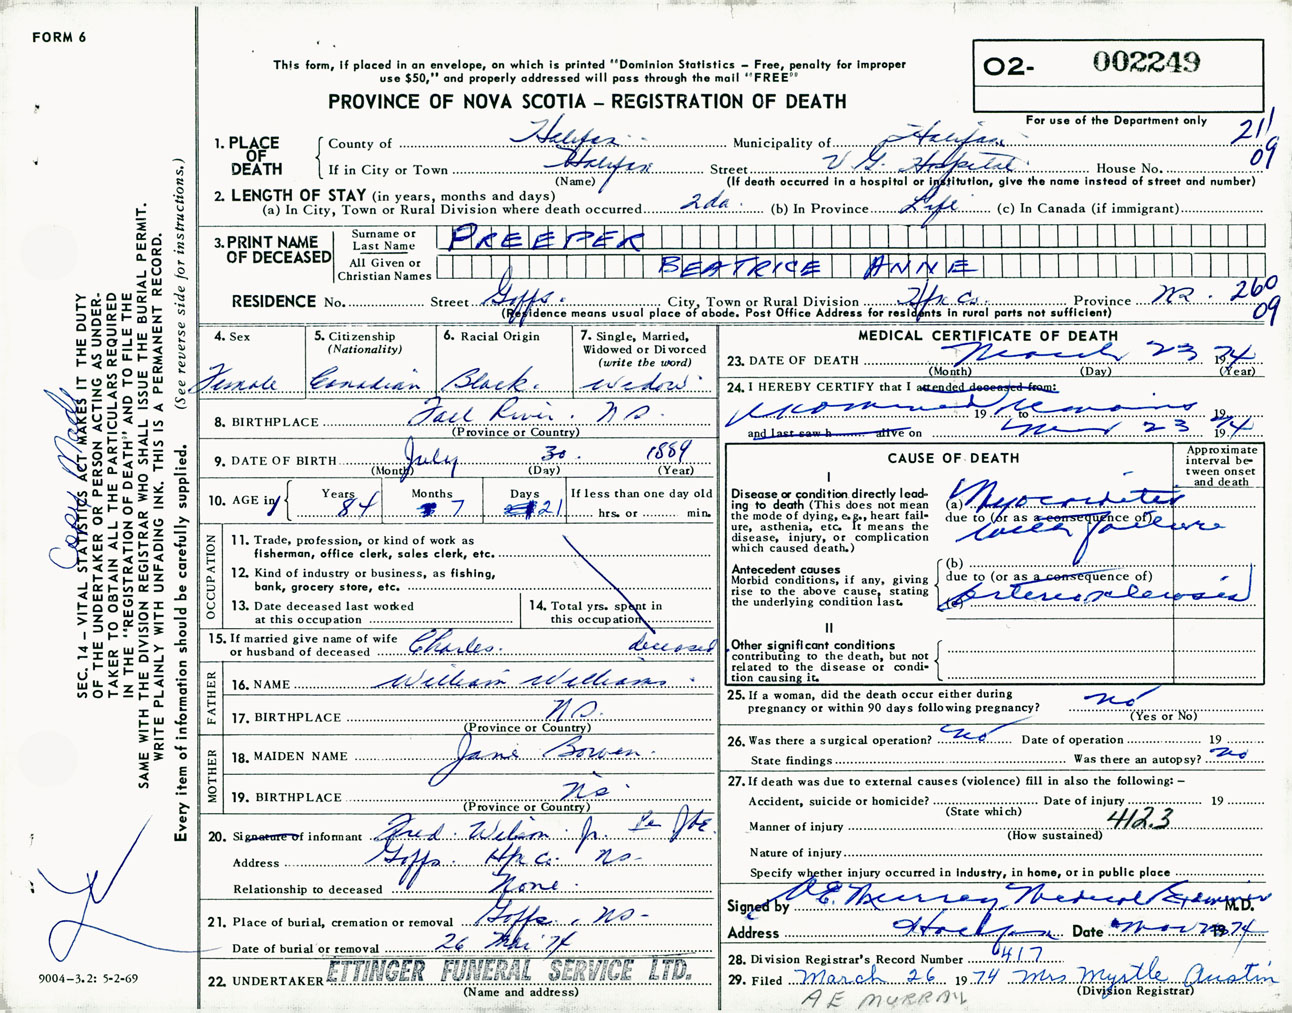 FORM 6
This form, if placed in an envelope, on which is printed "Dominion Statistics – Free, penalty for improper
use $50," and properly addressed will pass through the mail "FREE"
PROVINCE OF NOVA SCOTIA – REGISTRATION OF DEATH
O2- 002249
For use of the Department only
211
09
1. PLACE OF DEATH
County of Halifax Municipality of Halifax
If in City or Town Halifax Street V G. Hospital House No.
(Name) (If death occurred in a hospital or institution, give the name instead of street and number)
2. LENGTH OF STAY (in years, months and days)
(a) In City, Town or Rural Division where death occurred 2 da. (b) In Province Life (c) In Canada (if immigrant)
3. PRINT NAME OF DECEASED
Surname or Last Name PREEPER
All Given or Christian Names BEATRICE ANNE
RESIDENCE No. Street Goffs. City, Town or Rural Division Hfx Co. Province N.S. 260
(Residence means usual place of abode. Post Office Address for residents in rural parts not sufficient) 09
4. Sex
Female
5. Citizenship
(Nationality)
Canadian
6. Racial Origin
Black.
7. Single, Married,
Widowed or Divorced
(write the word)
Widow
8. BIRTHPLACE Fall River. N S.
(Province or Country)
9. DATE OF BIRTH July 30. 1889
(Month) (Day) (Year)
10. AGE in Years 84 Months 7 Days 21 If less than one day old
hrs. or min.
OCCUPATION
11. Trade, profession, or kind of work as
fisherman, office clerk, sales clerk, etc.
12. Kind of industry or business, as fishing,
bank, grocery store, etc.
13. Date deceased last worked
at this occupation
14. Total yrs. spent in
this occupation
15. If married give name of wife
or husband of deceased Charles. deceased
FATHER
16. NAME William Williams.
17. BIRTHPLACE N S.
(Province or Country)
MOTHER
18. MAIDEN NAME Jane Bowen.
19. BIRTHPLACE N S.
(Province or Country)
20. Signature of informant Fred Wilson Jr.
Address Goffs. Hfx Co. N S-
Relationship to deceased None.
21. Place of burial, cremation or removal Goffs, N S-
Date of burial or removal 26 Mar 74
22. UNDERTAKER ETTINGER FUNERAL SERVICE LTD.
(Name and address)
MEDICAL CERTIFICATE OF DEATH
23. DATE OF DEATH March 23 1974
(Month) (Day) (Year)
24. I HEREBY CERTIFY that I attended deceased from:
examined 19 to remains 19
and last saw h alive on Mar 23 1974
CAUSE OF DEATH
Approximate
interval be-
tween onset
and death
I
Disease or condition directly lead-
ing to death (This does not
mean the mode of dying, e.g., heart fail-
ure, asthenia, etc. It means the
disease, injury, or complication
which caused death.)
(a) Myocarditis
due to (or as a consequence of)
with failure
Antecedent causes
Morbid conditions, if any, giving
rise to the above cause, stating
the underlying condition last.
(b)
due to (or as a consequence of)
(c) Arteriosclerosis
II
Other significant conditions
contributing to the death, but not
related to the disease or condi-
tion causing it.
25. If a woman, did the death occur either during
pregnancy or within 90 days following pregnancy? no
(Yes or No)
26. Was there a surgical operation? no Date of operation 19
State findings Was there an autopsy? no
27. If death was due to external causes (violence) fill in also the following: –
Accident, suicide or homicide? Date of injury 19
(State which)
Manner of injury 412.3
(How sustained)
Nature of injury
Specify whether injury occurred in Industry, in home, or in public place
Signed by A E. Murray Medical Examiner M.D.
Address Halifax Date 1974
28. Division Registrar's Record Number 417
29. Filed March 26 1974 Mrs Myrtle Austin
(Division Registrar)
A E MURRAY
SEC. 14 – VITAL STATISTICS ACT MAKES IT THE DUTY
OF THE UNDERTAKER OR PERSON ACTING AS UNDER-
TAKER TO OBTAIN ALL THE PARTICULARS REQUIRED
IN THE "REGISTRATION OF DEATH" AND TO FILE THE
SAME WITH THE DIVISION REGISTRAR WHO SHALL ISSUE THE BURIAL PERMIT.
WRITE PLAINLY WITH UNFADING INK. THIS IS A PERMANENT RECORD.
Every item of information should be carefully supplied. (See reverse side for instructions.)
9004-3.2: 5-2-69